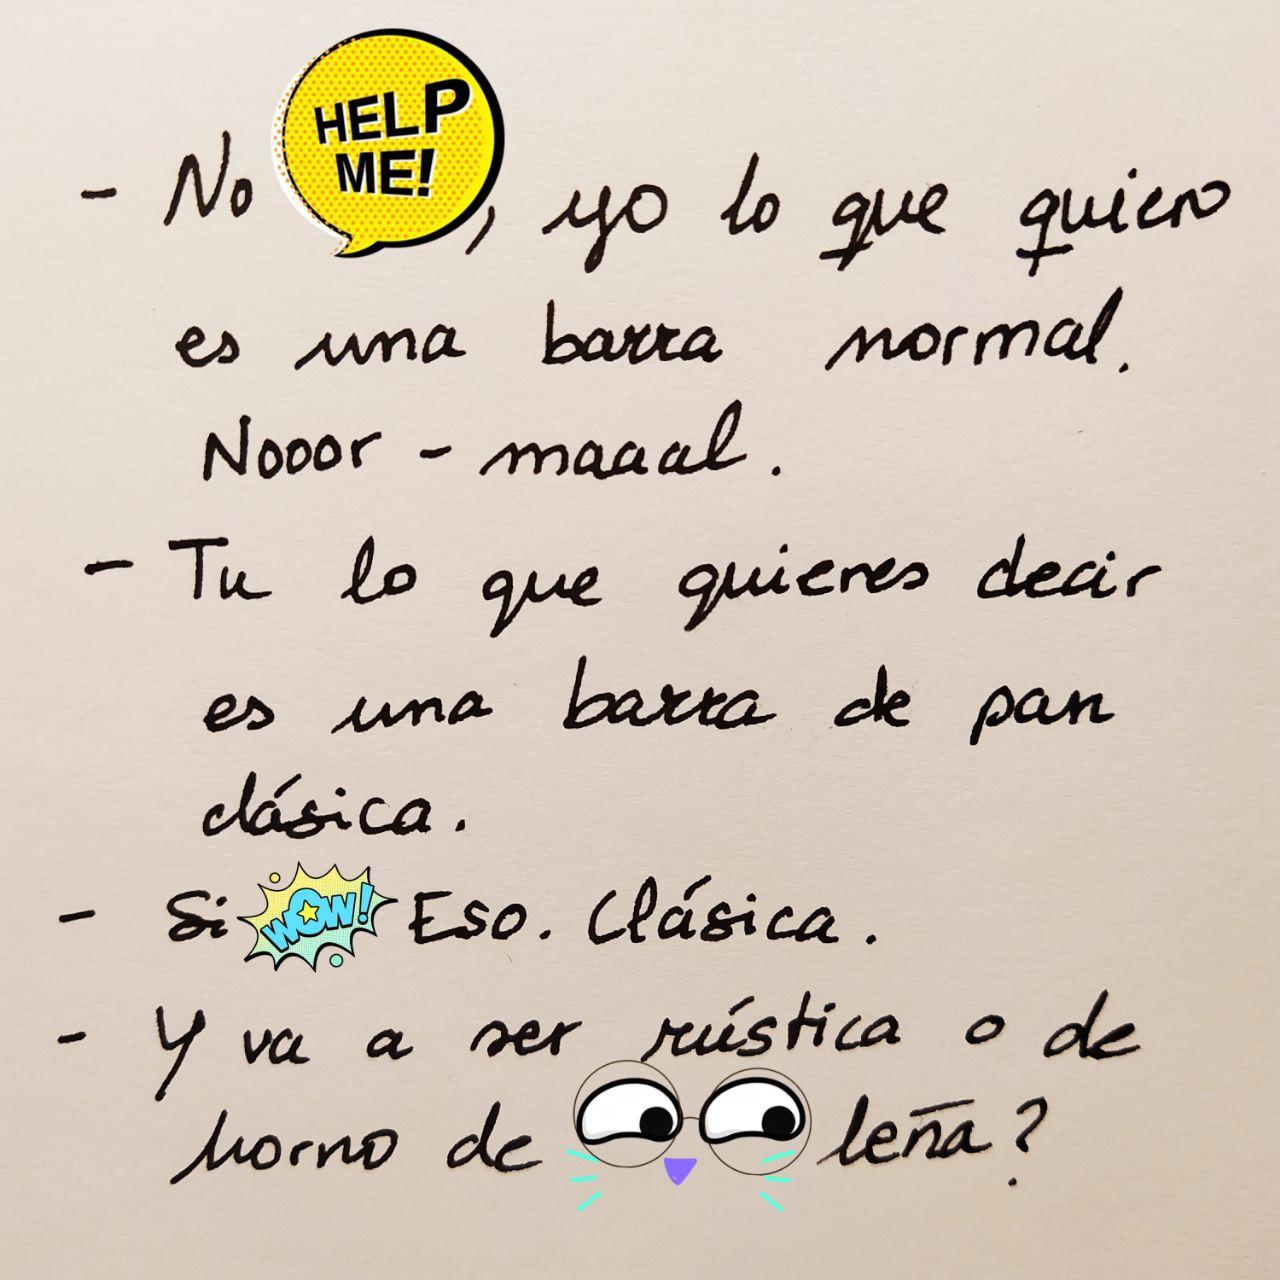 - No HELP ME!, yo lo que quiero
es una barra normal.
Nooor - maaal.
- Tu lo que quieres decir
es una barra de pan
clásica.
- Si WOW! Eso. Clásica.
- Y va a ser rústica o de
horno de leña?